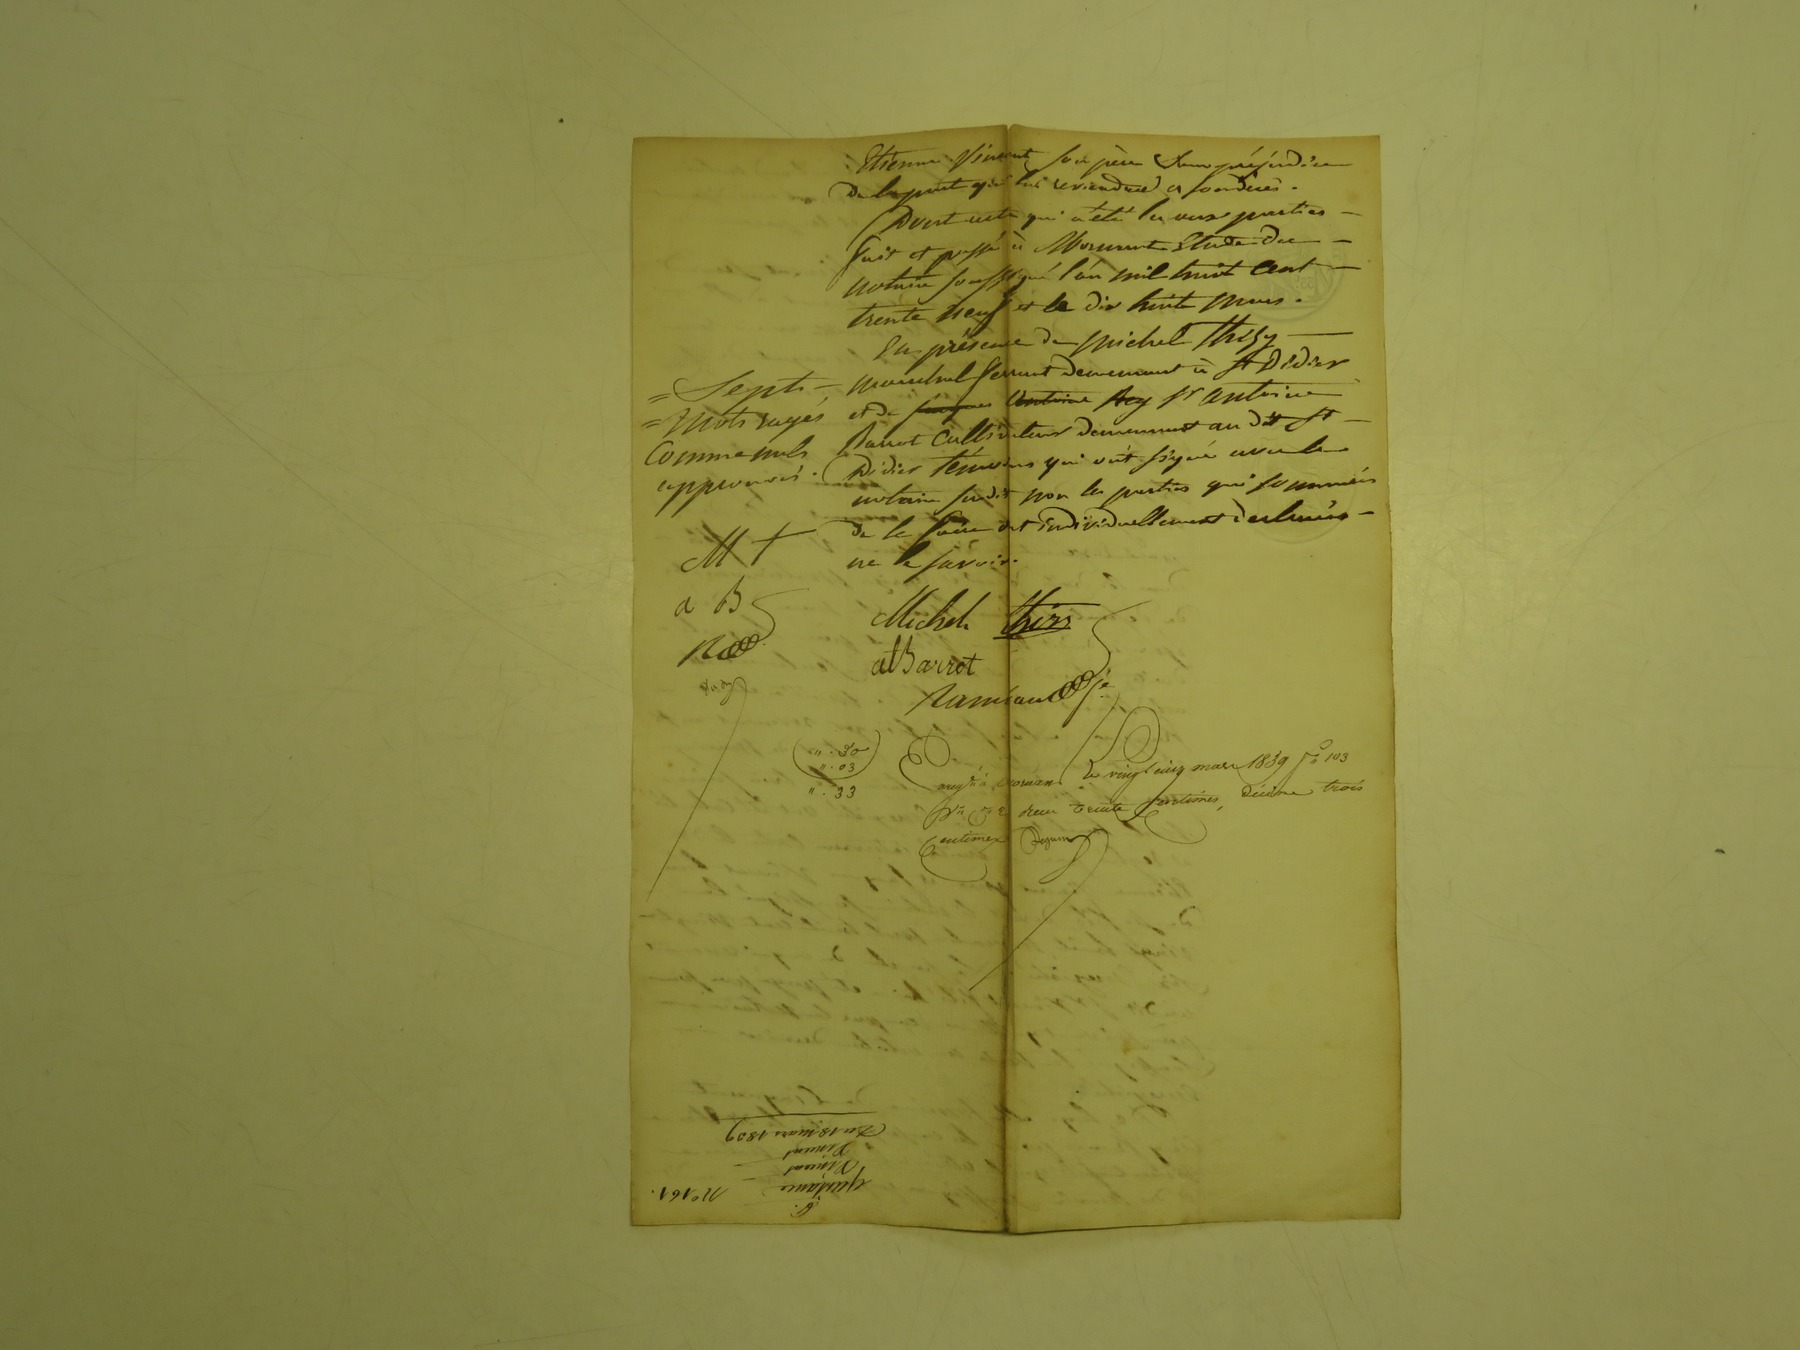 Etienne Vincent, son père sans préjudice
de la part qui lui reviendra ci
Dont acte qui a été lu aux parties
fait et passé à Mornant Etude du
notaire soussigné l'an mil huit cent
trente neuf et le dix huit mars.
En présence de Michel Thizy
marechal ferrant demeurant à St Didier
et de Antoine Rey Sr antoine
Barrot Cultivateur demeurant au dit St
Didier témoins qui ont signé avec le
notaire susdit non les parties qui sommées
de le faire ont individuellement déclarés
ne le savoir.
= Sept
= mots rayés
Comme nuls
approuvés.
M t
a B
R
Michel
aBarrot
Rambaud
" . 30
" . 03
" . 33
à Mornant le vingt cinq mars 1839 fo 103
trente centimes, décime trois
centimes
No 161.
quittance
Vincent
Vincent
Du 18 mars 1839